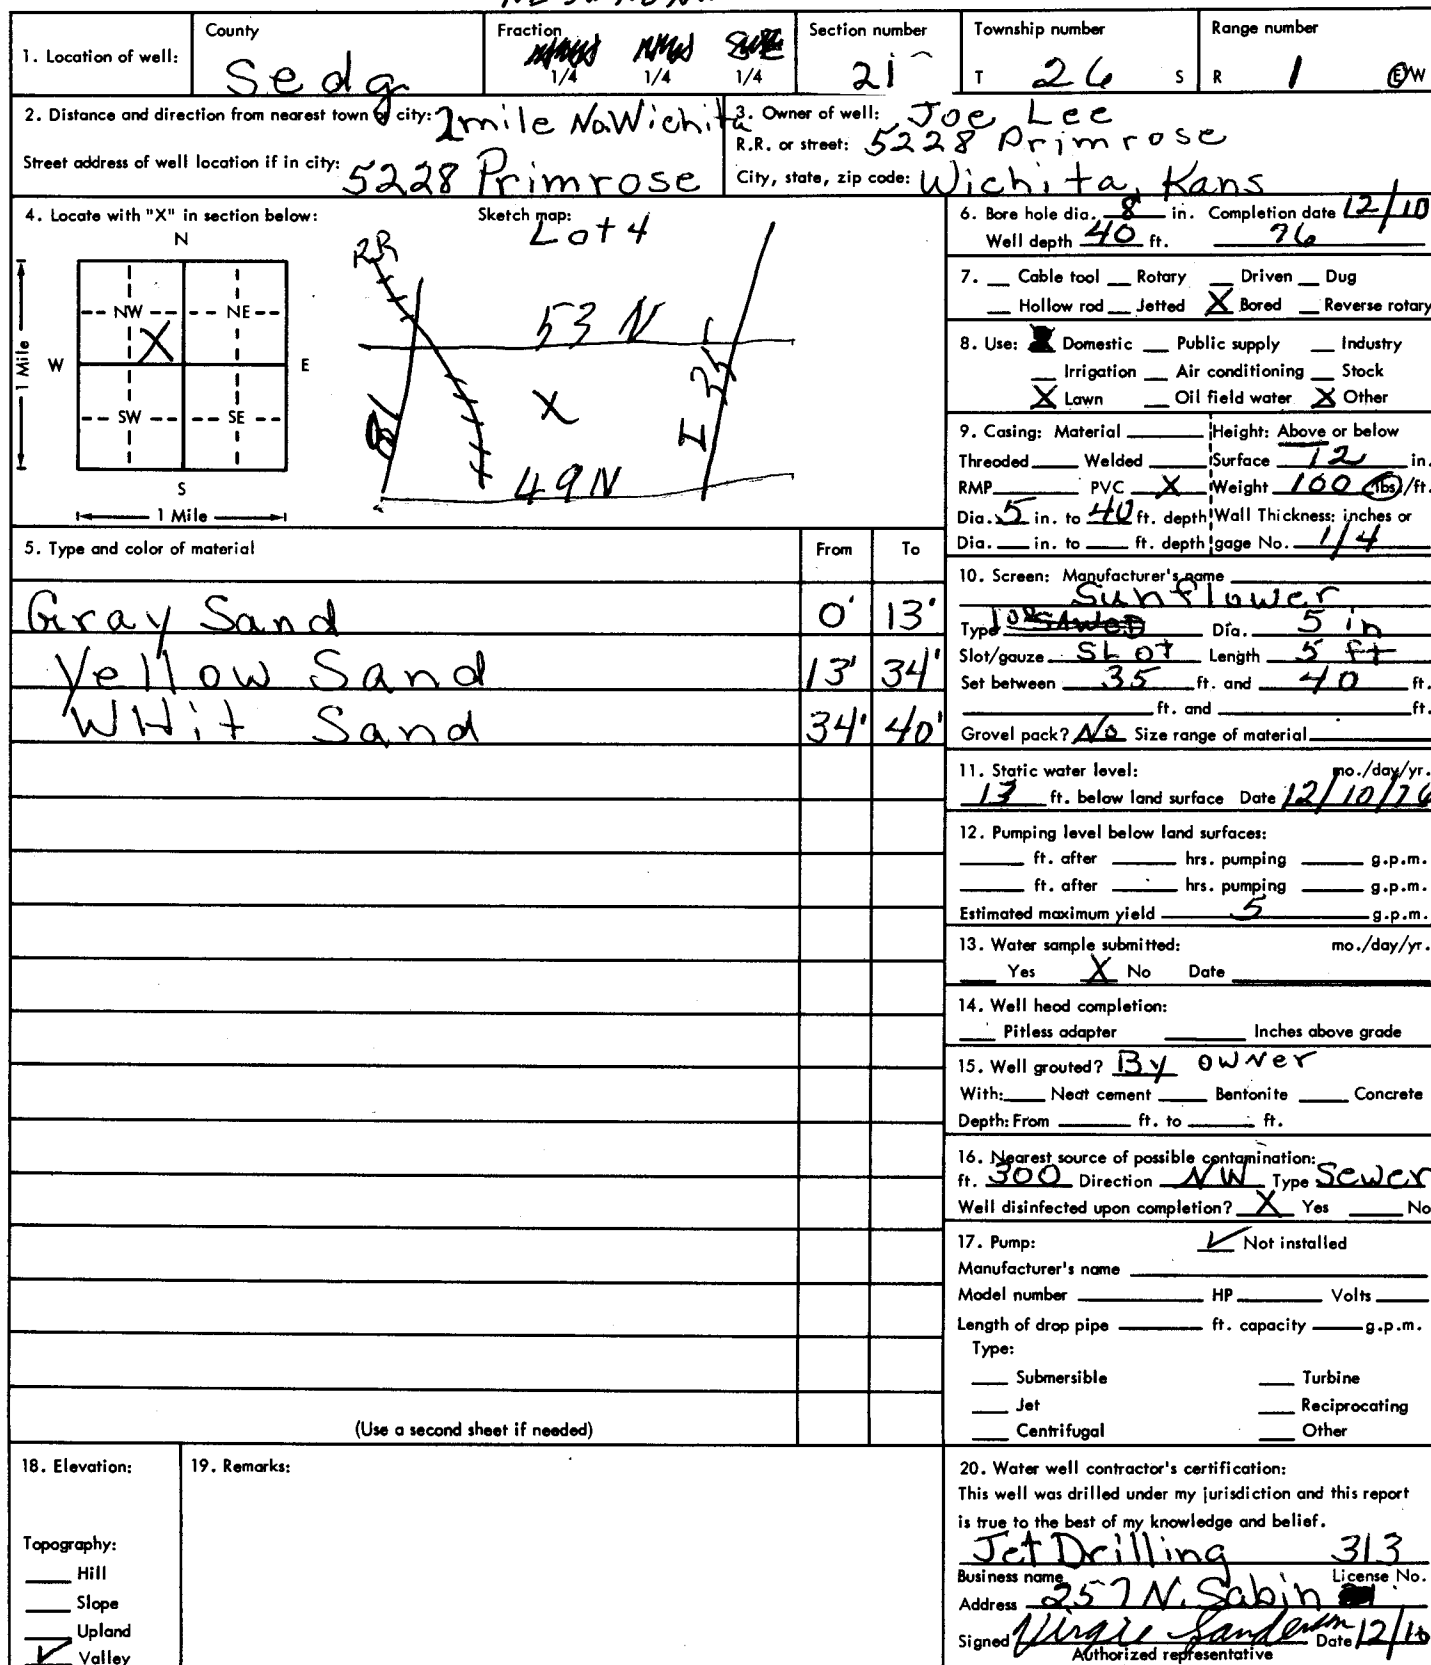 County Fraction Section number Township number Range number
1. Location of well: Sedg 1/4 1/4 1/4 21 T 26 S R 1 E/W
2. Distance and direction from nearest town or city: 2 mile No. Wichita
Street address of well location if in city: 5228 Primrose
3. Owner of well: Joe Lee
R.R. or street: 5228 Primrose
City, state, zip code: Wichita, Kans
4. Locate with "X" in section below: Sketch map:
Lot 4
N
RR
NW NE
X
53 N
1 Mile W E
I 35
SW SE
X
81
49 N
S
1 Mile
5. Type and color of material From To
Gray Sand 0' 13'
Yellow Sand 13' 34'
WHit Sand 34' 40'
(Use a second sheet if needed)
6. Bore hole dia. 8 in. Completion date 12/10
Well depth 40 ft. 76
7. Cable tool Rotary Driven Dug
Hollow rod Jetted X Bored Reverse rotary
8. Use: Domestic Public supply Industry
Irrigation Air conditioning Stock
X Lawn Oil field water X Other
9. Casing: Material Height: Above or below
Threaded Welded Surface 12 in.
RMP PVC X Weight 100 lbs./ft.
Dia. 5 in. to 40 ft. depth Wall Thickness: inches or
Dia. in. to ft. depth gage No. 1/4
10. Screen: Manufacturer's name
Sunflower
Type SAWED Dia. 5 in
Slot/gauze SLOT Length 5 ft
Set between 35 ft. and 40 ft.
ft. and ft.
Gravel pack? No Size range of material
11. Static water level: mo./day/yr.
13 ft. below land surface Date 12/10/76
12. Pumping level below land surfaces:
ft. after hrs. pumping g.p.m.
ft. after hrs. pumping g.p.m.
Estimated maximum yield 5 g.p.m.
13. Water sample submitted: mo./day/yr.
Yes X No Date
14. Well head completion:
Pitless adapter Inches above grade
15. Well grouted? By owner
With: Neat cement Bentonite Concrete
Depth: From ft. to ft.
16. Nearest source of possible contamination:
ft. 300 Direction NW Type Sewer
Well disinfected upon completion? X Yes No
17. Pump: ✓ Not installed
Manufacturer's name
Model number HP Volts
Length of drop pipe ft. capacity g.p.m.
Type:
Submersible Turbine
Jet Reciprocating
Centrifugal Other
18. Elevation: 19. Remarks:
Topography:
Hill
Slope
Upland
✓ Valley
20. Water well contractor's certification:
This well was drilled under my jurisdiction and this report
is true to the best of my knowledge and belief.
Jet Drilling 313
Business name License No.
Address 257 N. Sabin
Signed Virgie Sanderson Date 12/10
Authorized representative